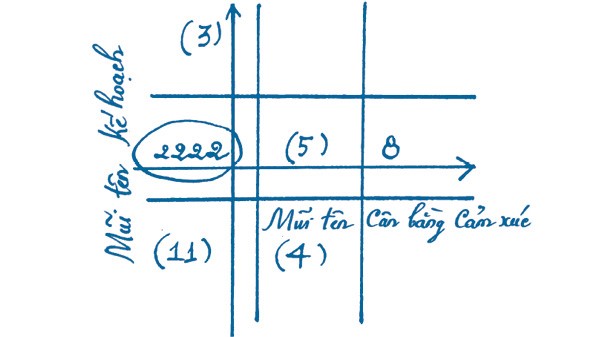 (3)
Mũi tên Kế hoạch
2222 (5) 8
Mũi tên Cân bằng Cảm xúc
(11) (4)